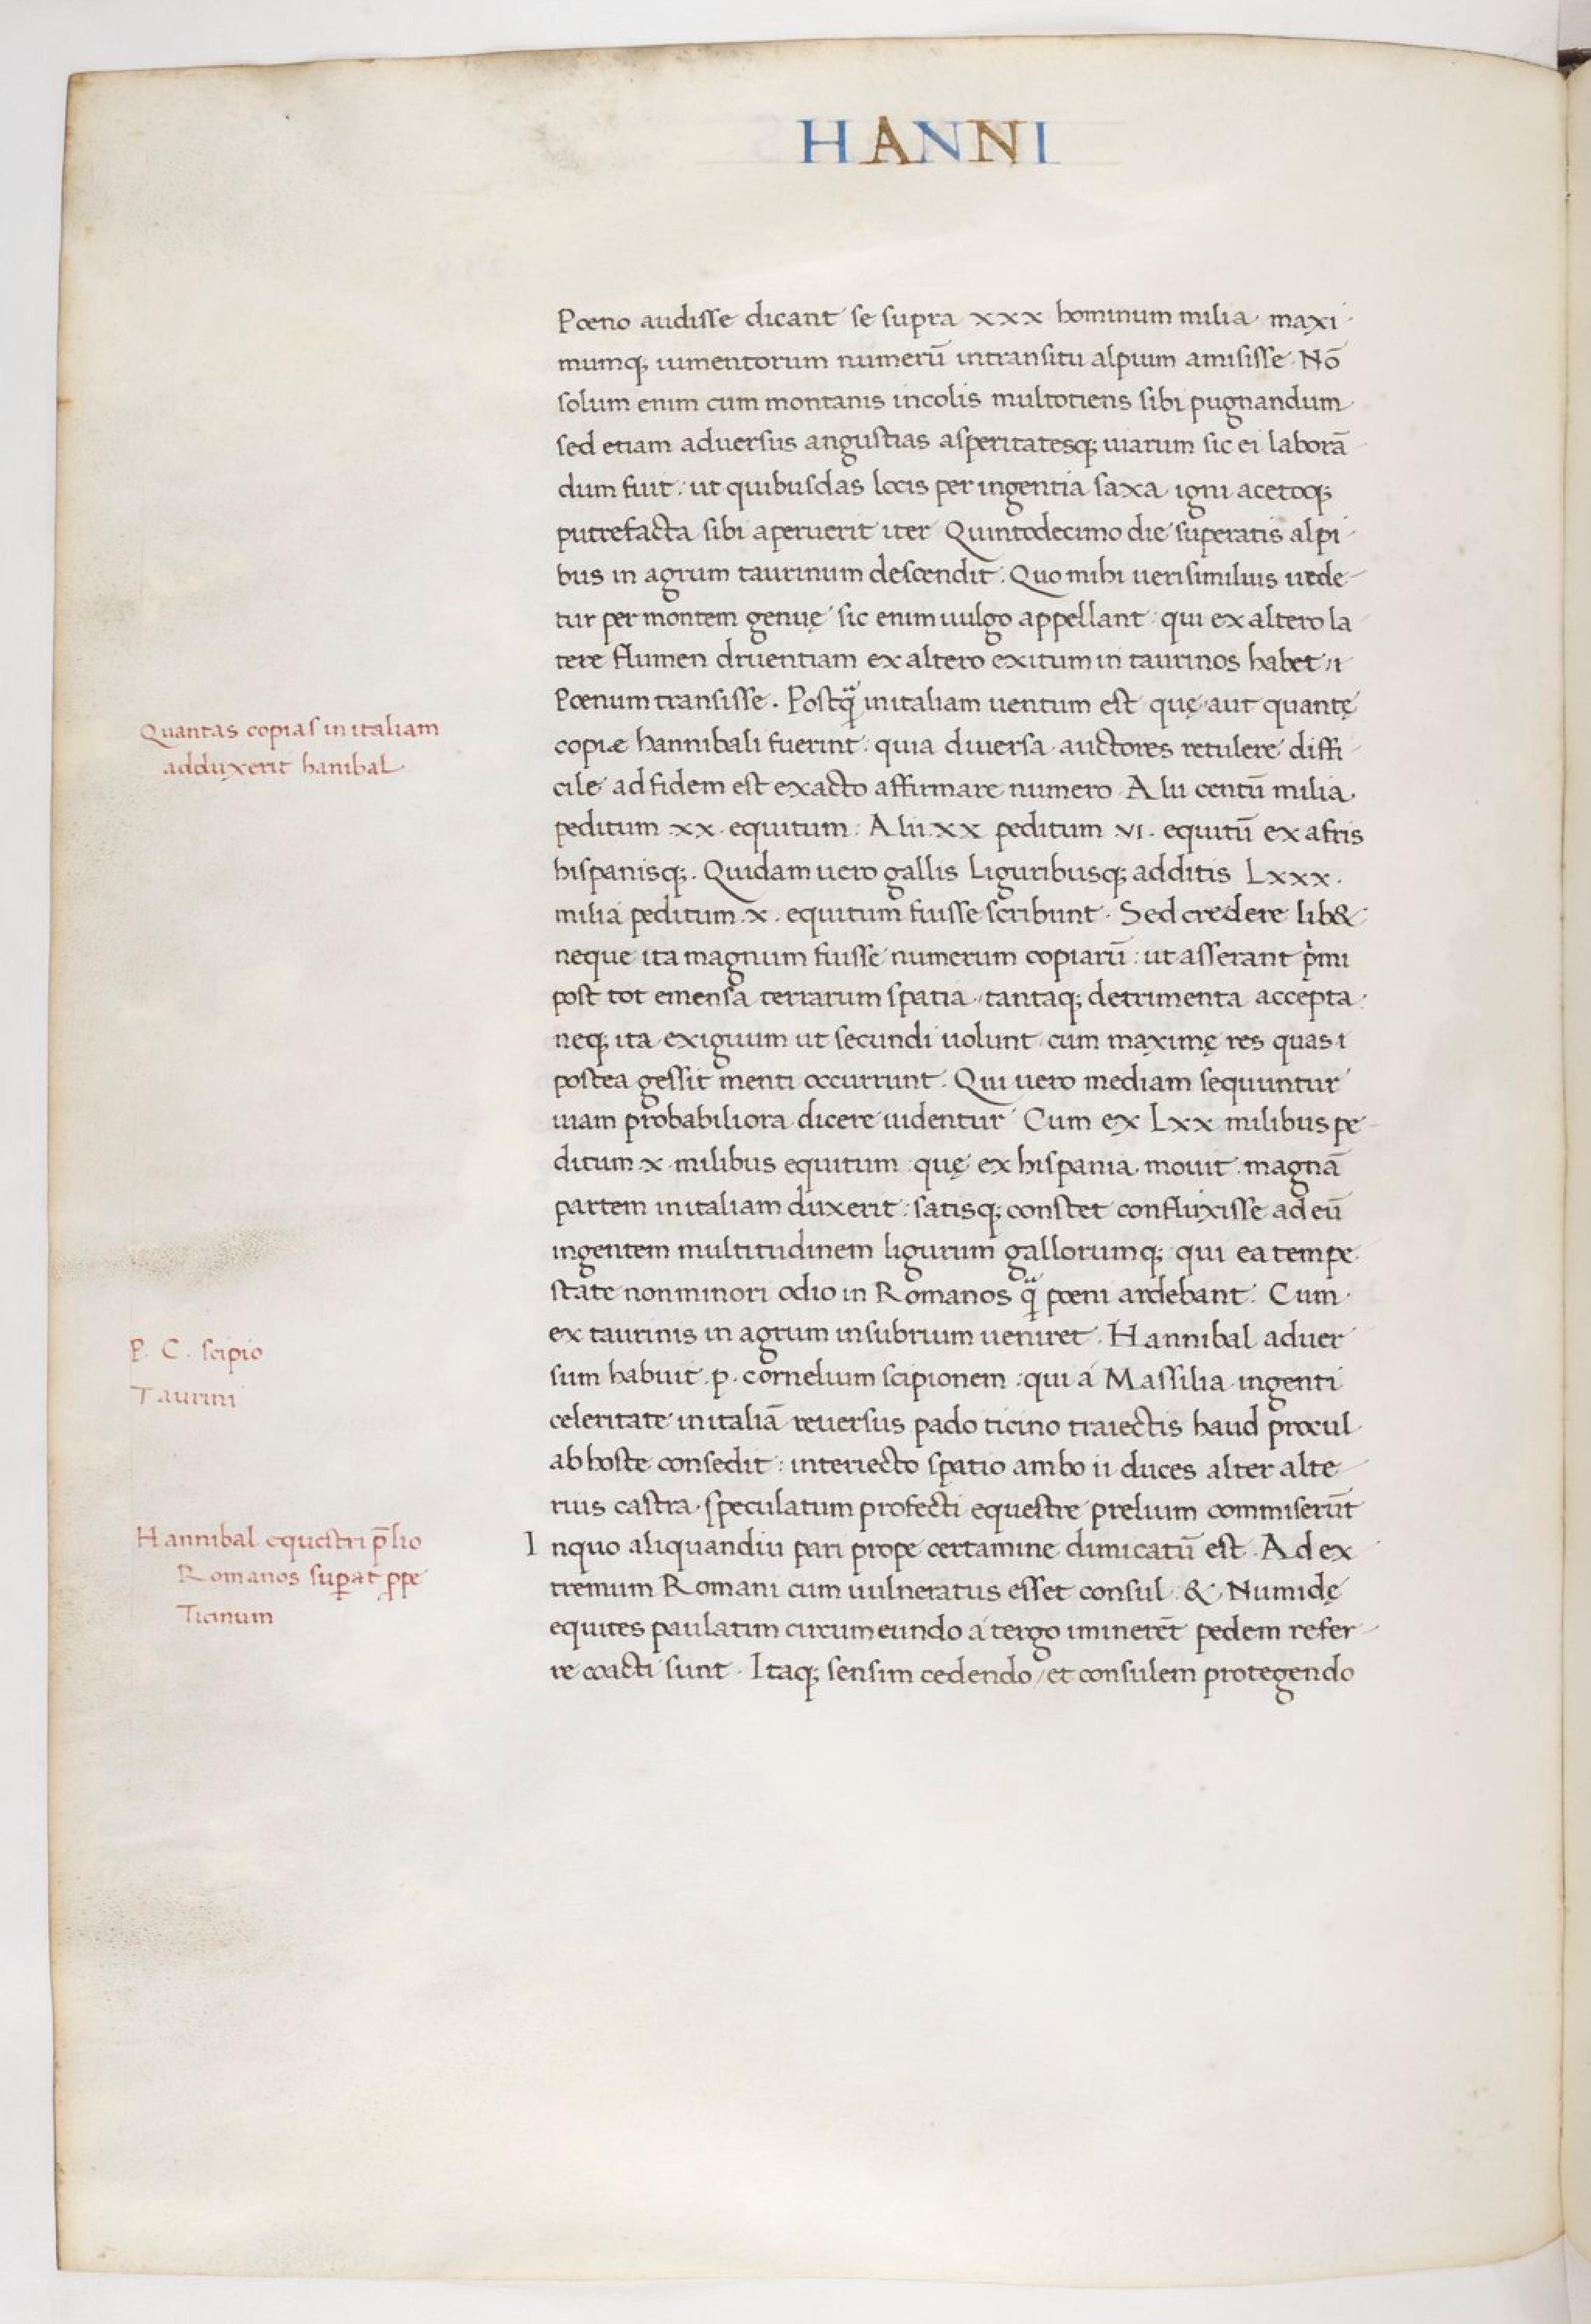 HANNI
Pœno audisse dicant se supra xxx hominum milia maxi
mumq; iumentorum numerū intransitu alpium amisisse. Nō
solum enim cum montanis incolis multotiens sibi pugnandum
sed etiam aduersus angustias asperitatesq; uiarum sic ei laborā
dum fuit: ut quibusdās locis per ingentia saxa igni acetoq;
putrefacta sibi aperuerit iter Quintodecimo die superatis alpi
bus in agrum taurinum descendit. Quo mihi uerisimilius uide
tur per montem genuę sic enim uulgo appellant qui ex altero la
tere flumen druentiam ex altero exitum in taurinos habet
Pœnum transisse. Postq̃ initaliam uentum est quę aut quantę
copiæ hannibali fuerint: quia diuersa auctores retulere diffi
cile ad fidem est exacto affirmare numero. Alii centū milia
peditum xx. equitum: Alii xx peditum vi. equitū ex afris
hispanisq;. Quidam uero gallis Liguribusq; additis Lxxx.
milia peditum .x. equitum fuisse scribunt. Sed credere lib&
neque ita magnum fuisse numerum copiarū: ut asserant p̃mi
post tot emensa terrarum spatia / tantaq; detrimenta accepta:
neq; ita exiguum ut secundi uolunt cum maximę res quas
postea gessit menti occurrunt. Qui uero mediam sequuntur
uiam probabiliora dicere uidentur Cum ex Lxx milibus pe
ditum .x. milibus equitum: quę ex hispania mouit magnā
partem initaliam duxerit: satisq; constet confluxisse ad eū
ingentem multitudinem ligurum gallorumq; qui ea tempe
state non minori odio in Romanos q̃ pœni ardebant. Cum
ex taurinis in agrum insubrium ueniret. Hannibal aduer
sum habuit .p. cornelium scipionem: qui á Massilia ingenti
celeritate initaliā reuersus pado ticino traiectis haud procul
ab hoste consedit: interiecto spatio ambo ii duces alter alte
rius castra speculatum profecti equestre prelium commiserūt
Inquo aliquandiu pari prope certamine dimicatū est. Ad ex
tremum Romani cum uulneratus esset consul & Numidę
equites paulatim circumeundo á tergo iminerēt pedem refer
re coacti sunt. Itaq; sensim cedendo / et consulem protegendo
Quantas copias initaliam
adduxerit hanibal
P. C. scipio
Taurini
Hannibal equestri p̄lio
Romanos sup̱at p̱pe
Ticinum